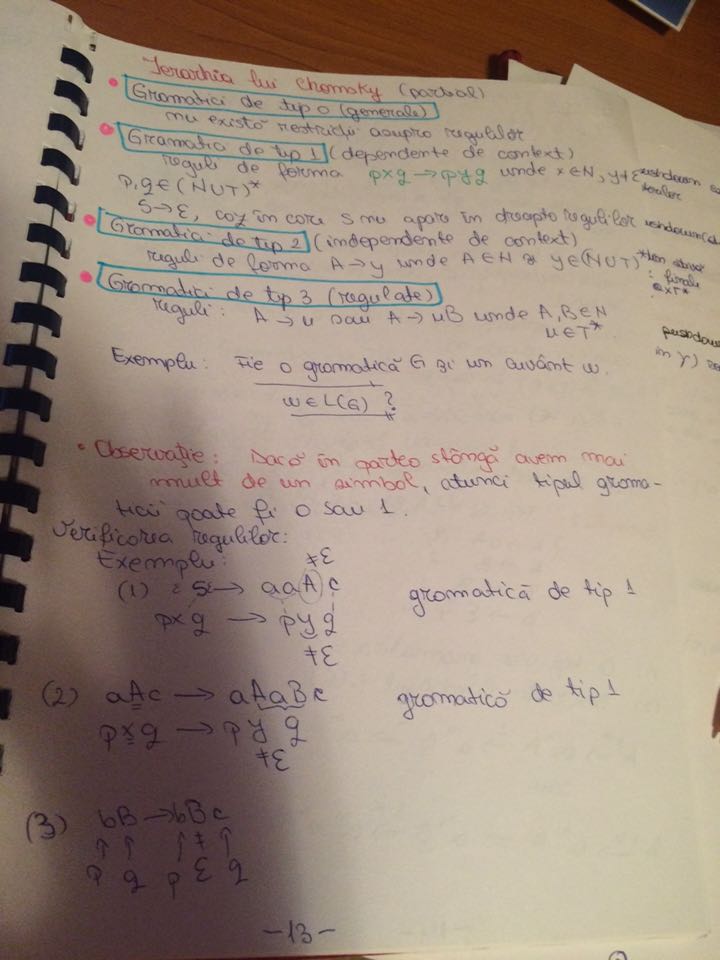 Ierarhia lui Chomsky (partial)
• Gramatici de tip 0 (generale)
nu există restricții asupra regulilor
• Gramatici de tip 1 (dependente de context)
reguli de forma pxq → pyq unde x∈N, y≠ε
p,q∈(N∪T)*
S→ε, caz în care S nu apare în dreapta regulilor
• Gramatici de tip 2 (independente de context)
reguli de forma A→y unde A∈N și y∈(N∪T)*
• Gramatici de tip 3 (regulate)
reguli: A→u sau A→uB unde A,B∈N
u∈T*
Exemplu: Fie o gramatică G și un cuvânt w.
w∈L(G) ?
• Observație: Dacă în partea stângă avem mai
mult de un simbol, atunci tipul grama-
ticii poate fi 0 sau 1.
Verificarea regulilor:
Exemplu: ≠ε
(1) εSε → aaAc gramatică de tip 1
pxq → pyq
≠ε
(2) aAc → aAaBc gramatică de tip 1
pxq → pyq
≠ε
(3) bB → bBc
↑ ↑ ↑ ≠ ↑
p q p ε q
-13-
pushdown
finale
pushdown